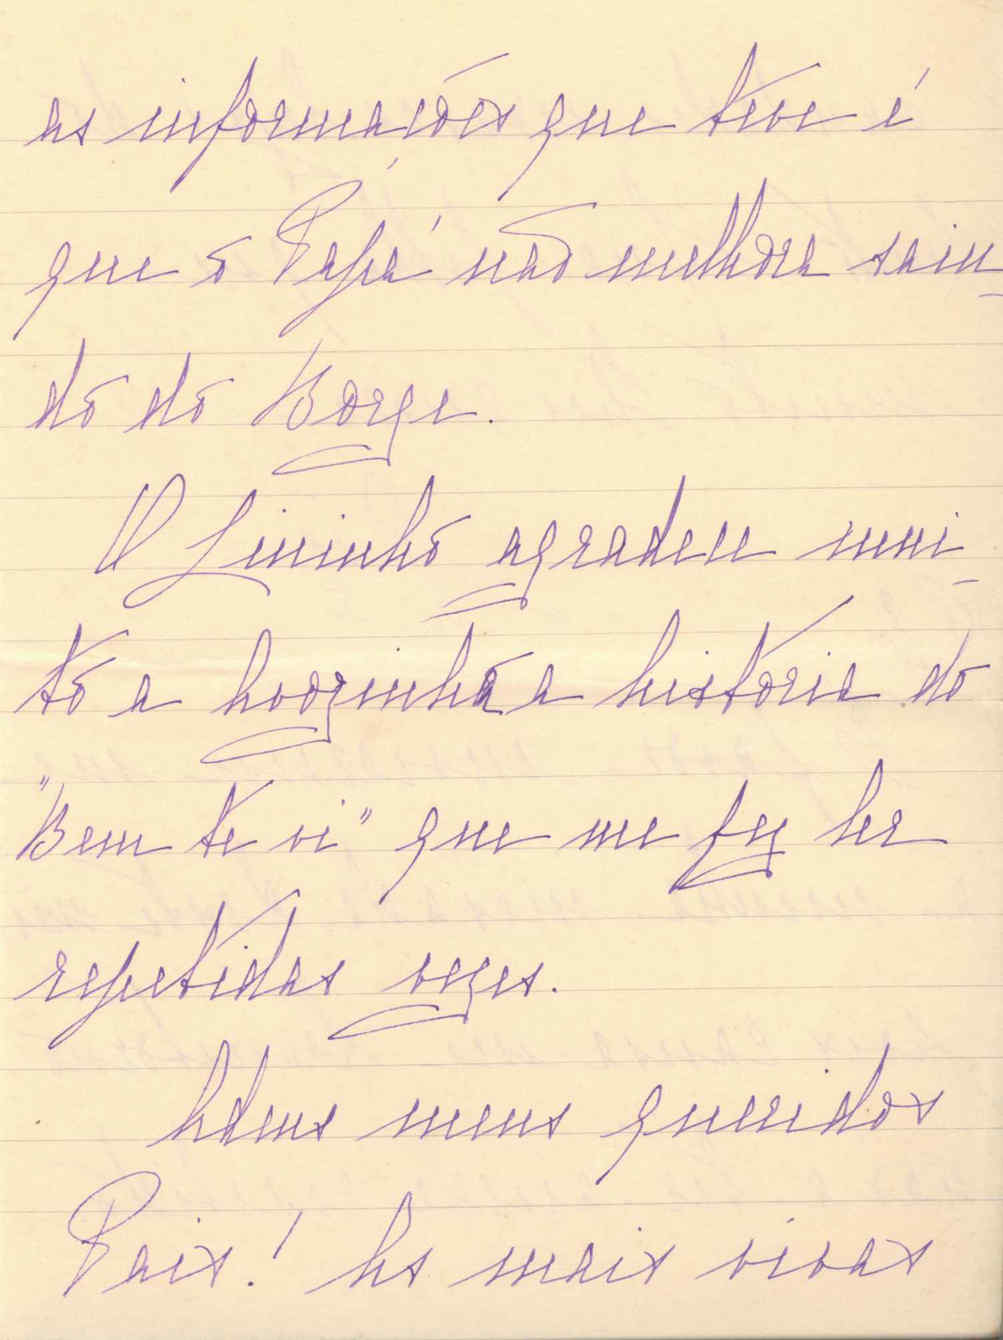 as informações que teve é
que o Papá não melhora sain-
do do Borge.
O Lininho agradece mui-
to a Avózinha a historia do
"Bem te vi" que me fez ler
repetidas vezes.
Adeus meus queridos
Pais! As mais vivas